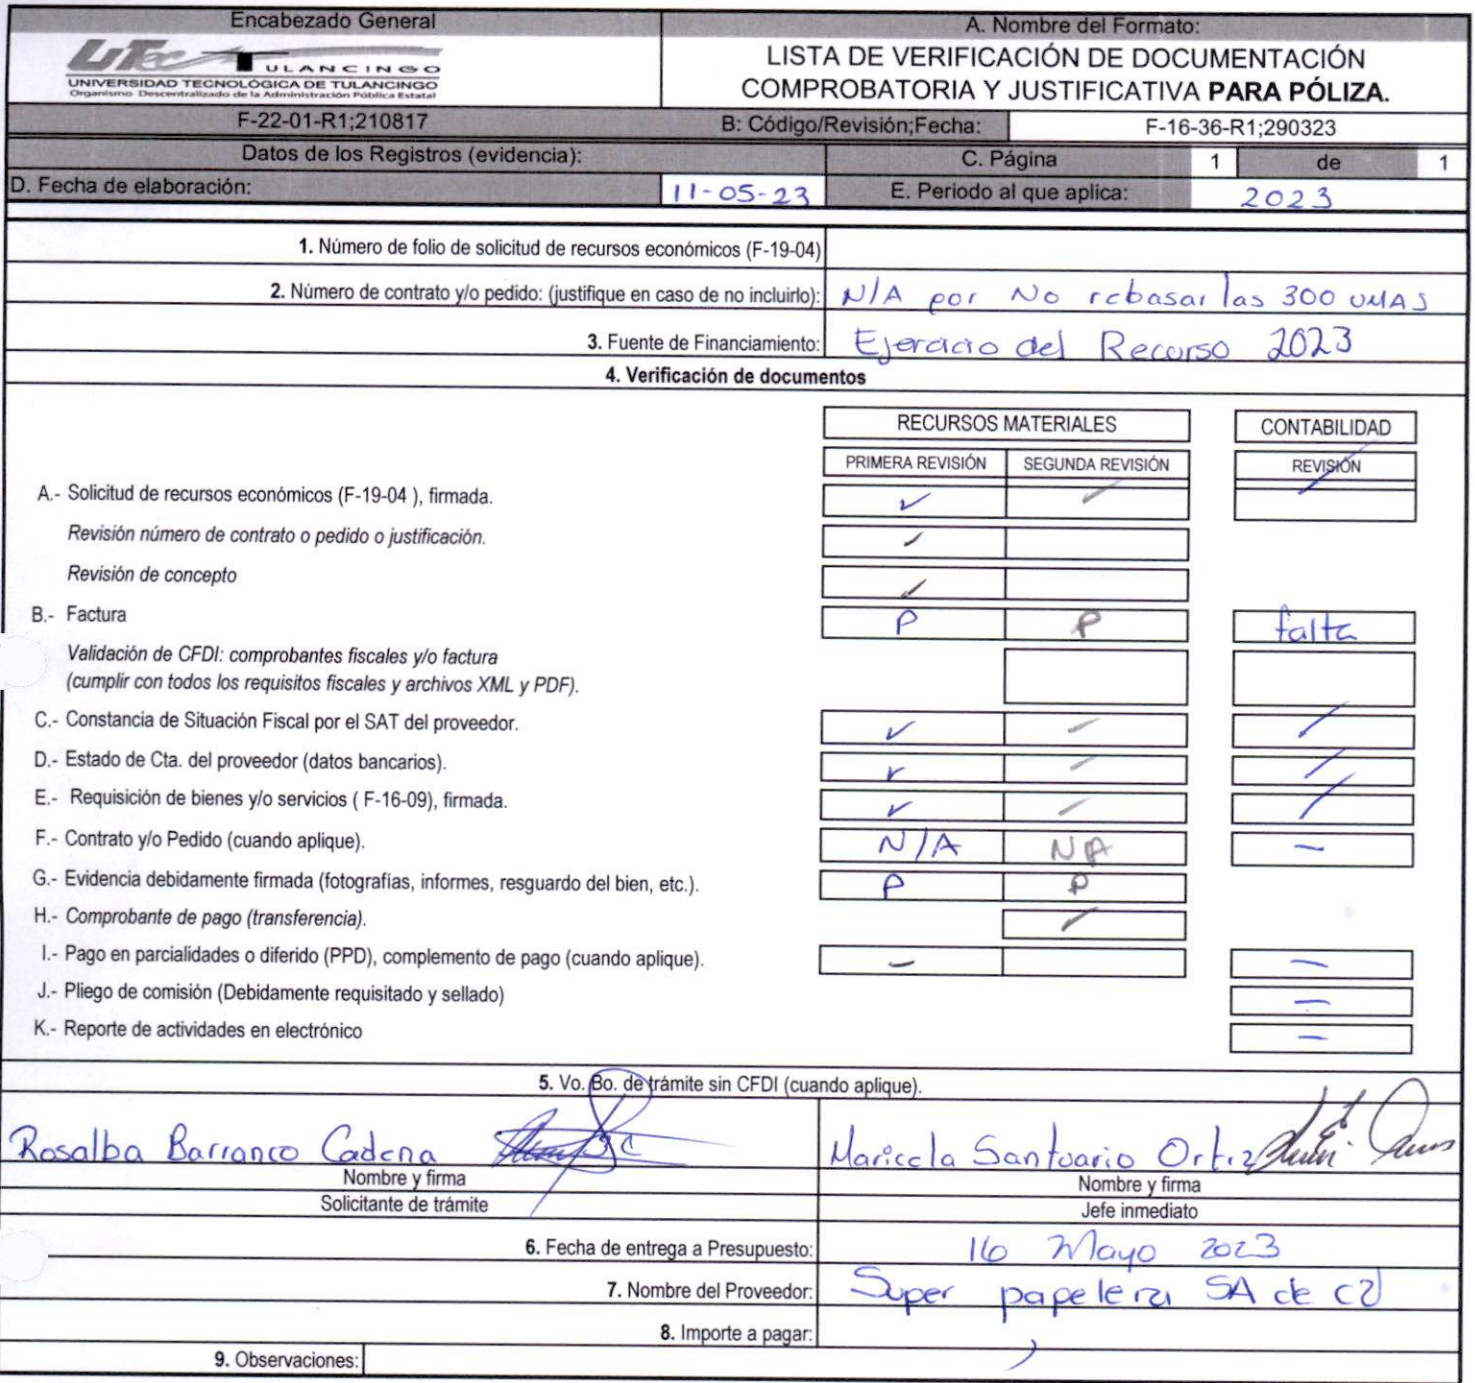 Encabezado General
A. Nombre del Formato:
UTec TULANCINGO
UNIVERSIDAD TECNOLÓGICA DE TULANCINGO
Organismo Descentralizado de la Administración Pública Estatal
LISTA DE VERIFICACIÓN DE DOCUMENTACIÓN
COMPROBATORIA Y JUSTIFICATIVA PARA PÓLIZA.
F-22-01-R1;210817 B: Código/Revisión;Fecha: F-16-36-R1;290323
Datos de los Registros (evidencia): C. Página 1 de 1
D. Fecha de elaboración: 11-05-23 E. Periodo al que aplica: 2023
1. Número de folio de solicitud de recursos económicos (F-19-04)
2. Número de contrato y/o pedido: (justifique en caso de no incluirlo): N/A por No rebasar las 300 UMAS
3. Fuente de Financiamiento: Ejercicio del Recurso 2023
4. Verificación de documentos
RECURSOS MATERIALES CONTABILIDAD
PRIMERA REVISIÓN SEGUNDA REVISIÓN REVISIÓN
A.- Solicitud de recursos económicos (F-19-04 ), firmada. ✓ ✓
Revisión número de contrato o pedido o justificación. ✓
Revisión de concepto ✓
B.- Factura P P falta
Validación de CFDI: comprobantes fiscales y/o factura
(cumplir con todos los requisitos fiscales y archivos XML y PDF).
C.- Constancia de Situación Fiscal por el SAT del proveedor. ✓ ✓ /
D.- Estado de Cta. del proveedor (datos bancarios). ✓ ✓ /
E.- Requisición de bienes y/o servicios ( F-16-09), firmada. ✓ ✓ /
F.- Contrato y/o Pedido (cuando aplique). N/A NA –
G.- Evidencia debidamente firmada (fotografías, informes, resguardo del bien, etc.). P P
H.- Comprobante de pago (transferencia). ✓
I.- Pago en parcialidades o diferido (PPD), complemento de pago (cuando aplique). – –
J.- Pliego de comisión (Debidamente requisitado y sellado) –
K.- Reporte de actividades en electrónico –
5. Vo. Bo. de trámite sin CFDI (cuando aplique).
Rosalba Barranco Cadena Maricela Santuario Ortiz
Nombre y firma Nombre y firma
Solicitante de trámite Jefe inmediato
6. Fecha de entrega a Presupuesto: 16 Mayo 2023
7. Nombre del Proveedor: Super papelera SA de CV
8. Importe a pagar:
9. Observaciones: